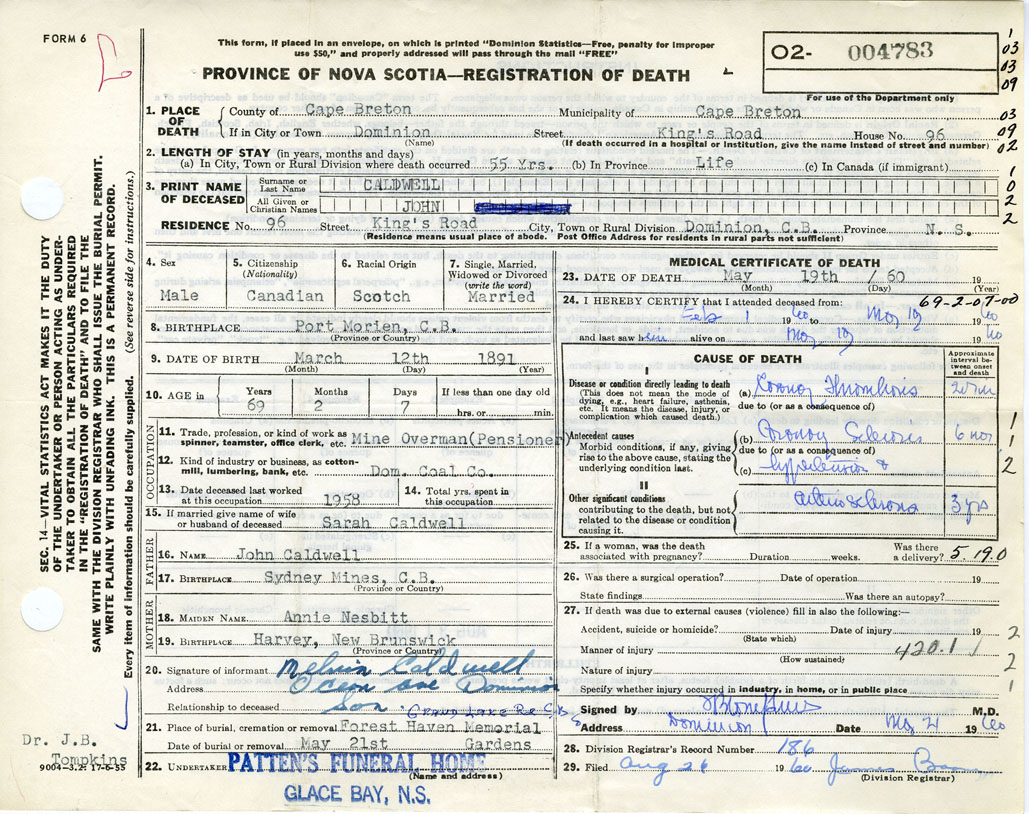 FORM 6
This form, if placed in an envelope, on which is printed "Dominion Statistics—Free, penalty for improper
use $50," and properly addressed will pass through the mail "FREE"
PROVINCE OF NOVA SCOTIA—REGISTRATION OF DEATH
02- 004783
For use of the Department only
1
03
03
09
03
09
02
1
0
2
2
1. PLACE OF DEATH
County of Cape Breton Municipality of Cape Breton
If in City or Town Dominion Street King's Road House No. 96
(Name) (If death occurred in a hospital or Institution, give the name instead of street and number)
2. LENGTH OF STAY (in years, months and days)
(a) In City, Town or Rural Division where death occurred 55 Yrs. (b) In Province Life (c) In Canada (if immigrant)
3. PRINT NAME OF DECEASED
Surname or Last Name CALDWELL
All Given or Christian Names JOHN
RESIDENCE No. 96 Street King's Road City, Town or Rural Division Dominion, C.B. Province N. S.
(Residence means usual place of abode. Post Office Address for residents in rural parts not sufficient)
SEC. 14—VITAL STATISTICS ACT MAKES IT THE DUTY
OF THE UNDERTAKER OR PERSON ACTING AS UNDER-
TAKER TO OBTAIN ALL THE PARTICULARS REQUIRED
IN THE "REGISTRATION OF DEATH" AND TO FILE THE
SAME WITH THE DIVISION REGISTRAR WHO SHALL ISSUE THE BURIAL PERMIT.
WRITE PLAINLY WITH UNFADING INK. THIS IS A PERMANENT RECORD.
Every item of information should be carefully supplied. (See reverse side for instructions.)
4. Sex
Male
5. Citizenship
(Nationality)
Canadian
6. Racial Origin
Scotch
7. Single, Married,
Widowed or Divorced
(write the word)
Married
8. BIRTHPLACE Port Morien, C.B.
(Province or Country)
9. DATE OF BIRTH March 12th 1891
(Month) (Day) (Year)
10. AGE in
Years Months Days If less than one day old
69 2 7 hrs. or min.
OCCUPATION
11. Trade, profession, or kind of work as
spinner, teamster, office clerk, etc. Mine Overman(Pensioner)
12. Kind of industry or business, as cotton-
mill, lumbering, bank, etc. Dom. Coal Co.
13. Date deceased last worked
at this occupation. 1958
14. Total yrs. spent in
this occupation
15. If married give name of wife
or husband of deceased Sarah Caldwell
FATHER
16. NAME John Caldwell
17. BIRTHPLACE Sydney Mines, C.B.
(Province or Country)
MOTHER
18. MAIDEN NAME Annie Nesbitt
19. BIRTHPLACE Harvey, New Brunswick
(Province or Country)
20. Signature of informant Melvin Caldwell
Address Ocean ave Dominion
Relationship to deceased Son
GRAND LAKE Rd C.B
21. Place of burial, cremation or removal Forest Haven Memorial
Date of burial or removal May 21st Gardens
22. UNDERTAKER PATTEN'S FUNERAL HOME
(Name and address)
GLACE BAY, N.S.
Dr. J.B.
Tompkins
9004—3.2: 17-6-55
MEDICAL CERTIFICATE OF DEATH
23. DATE OF DEATH May 19th / 60 19
(Month) (Day) (Year)
24. I HEREBY CERTIFY that I attended deceased from: 69-2-07-00
Feb 1 1960 to May 19 1960
and last saw him alive on May 19 1960
CAUSE OF DEATH
Approximate interval between onset and death
I
Disease or condition directly leading to death
(This does not mean the mode of dying, e.g., heart failure, asthenia, etc. It means the disease, injury, or complication which caused death.)
(a) Coronary Thrombosis
due to (or as a consequence of)
Antecedent causes
Morbid conditions, if any, giving rise to the above cause, stating the underlying condition last.
(b) Coronary Sclerosis 6 mos
due to (or as a consequence of)
(c) hypertension &
II
Other significant conditions
contributing to the death, but not related to the disease or condition causing it.
arteriosclerosis 3 yrs
1
1
2
25. If a woman, was the death
associated with pregnancy? Duration weeks. Was there a delivery? 5.19.0
26. Was there a surgical operation? Date of operation 19
State findings Was there an autopsy?
27. If death was due to external causes (violence) fill in also the following:—
Accident, suicide or homicide? Date of injury 19
(State which)
Manner of injury 420.1
(How sustained)
Nature of injury
Specify whether injury occurred in industry, in home, or in public place
2
2
1
Signed by JB Tompkins M.D.
Address Dominion Date May 21 1960
28. Division Registrar's Record Number 186
29. Filed Aug 26 1960 James
(Division Registrar)